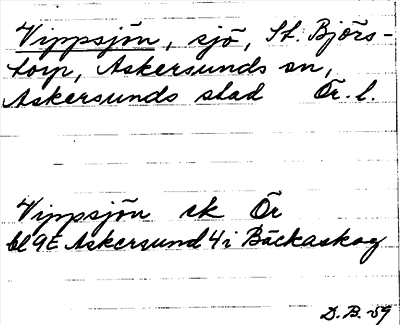 Vippsjön, sjö, St. Björs-
torp, Askersunds sn,
Askersunds stad Ör. l.
Vippsjön ek Ör
bl 9E Askersund 4i Bäckaskog
D.B. -59